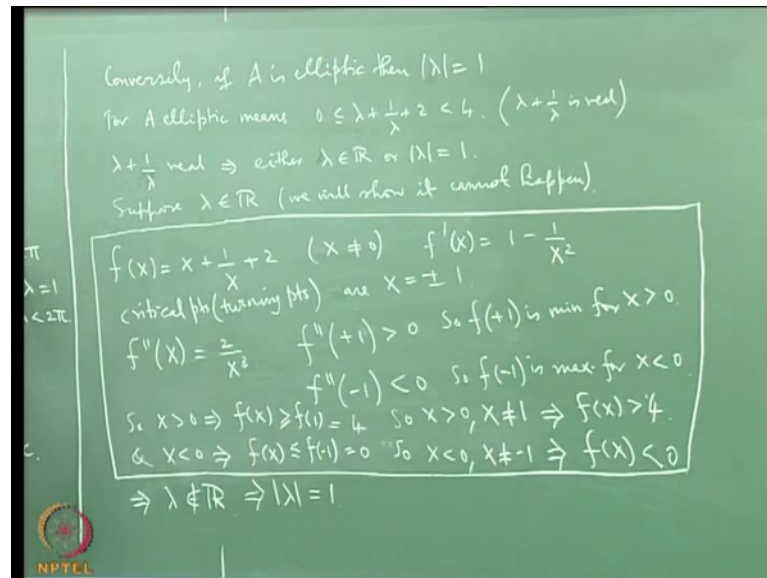 Conversely, if A is elliptic then |λ| = 1
For A elliptic means 0 ≤ λ + 1/λ + 2 < 4. (λ + 1/λ is real)
λ + 1/λ real ⇒ either λ ∈ ℝ or |λ| = 1.
Suppose λ ∈ ℝ (we will show it cannot happen).
f(x) = x + 1/x + 2 (x ≠ 0) f'(x) = 1 - 1/x²
critical pts (turning pts) are x = ± 1.
f''(x) = 2/x³ f''(+1) > 0 So f(+1) is min for x > 0.
f''(-1) < 0 So f(-1) is max. for x < 0
So x > 0 ⇒ f(x) ≥ f(1) = 4 So x > 0, x ≠ 1 ⇒ f(x) > 4.
& x < 0 ⇒ f(x) ≤ f(-1) = 0 So x < 0, x ≠ -1 ⇒ f(x) < 0
⇒ λ ∉ ℝ ⇒ |λ| = 1
π
λ = 1
< 2π.
c.
NPTEL